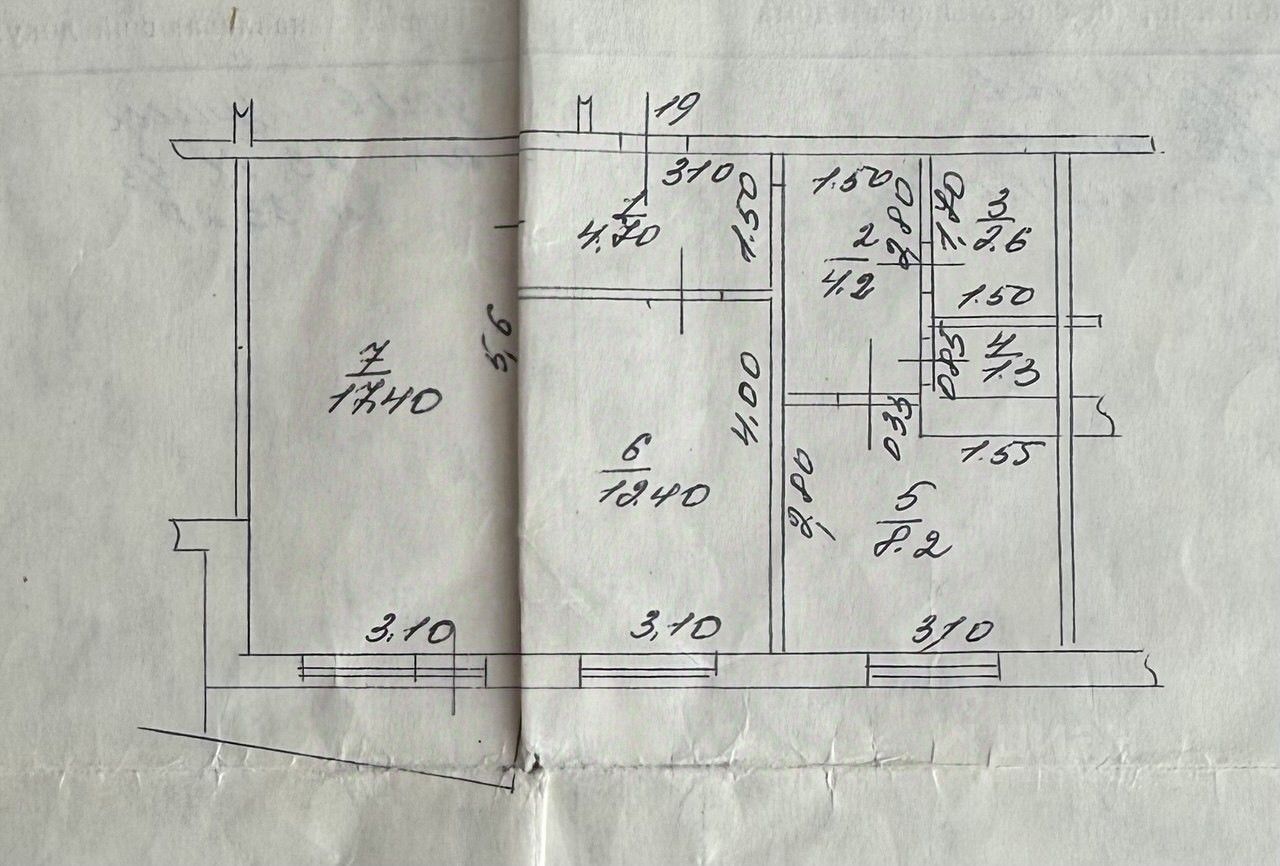 19
3.10
1
4.70
1.50
1.50
2.80
2
4.2
1.70
3
2.6
1.50
5,6
7
17,40
4
1.3
0.85
4,00
0.35
6
12.40
1.55
2,80
5
8.2
3.10
3,10
3,10